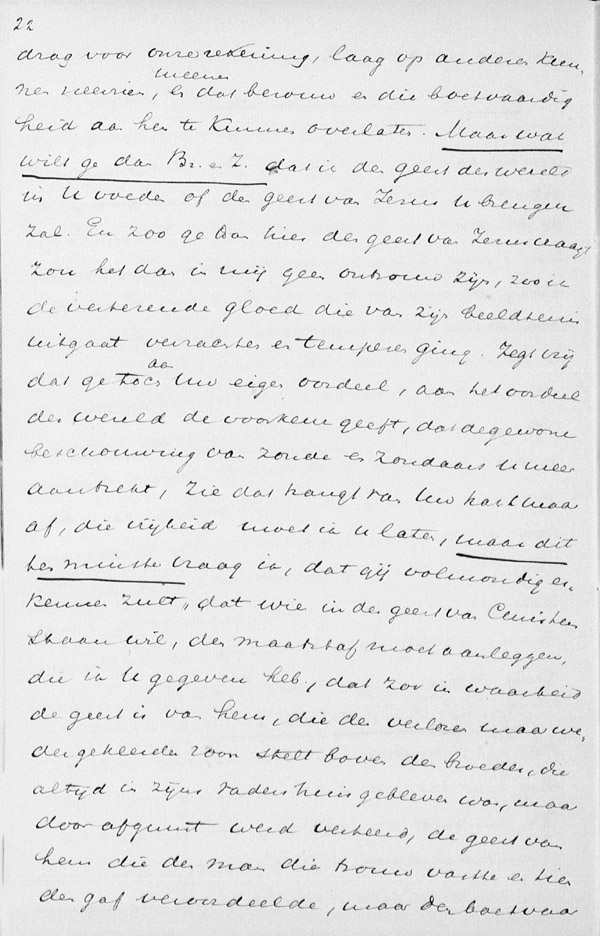 22
drag voor onze rekening, laag op anderen kun-
meenen
nen neerzien, en dat berouw en die boetvaardig
heid aan hen te kunnen overlaten. Maar wat
wilt ge dan Br. en Z. dat is de geest der wereld
in U voeden of de geest van Jezus U brengen
zal. En zoo ge dan hier den geest van Jezus vraagt
zou het dan in mij geen ontrouw zijn, zoo ik
de verterende gloed die van zijn beeldtenis
uitgaat verzachten en temperen ging. Zegt vrij
aan
dat ge toch Uw eigen oordeel, aan het oordeel
der wereld de voorkeur geeft, dat de gewone
beschouwing van zonde en zondaars U meer
aantrekt, zie dat hangt van Uw hart maar
af, die vrijheid moet ik u laten, maar dit
ten minste vraag ik, dat gij volmondig er-
kennen zult, dat wie in den geest van Christus
staan wil, den maatstaf moet aanleggen,
die ik U gegeven heb, dat zoo in waarheid
de geest is van hem, die den verloren maar we-
dergekeerden zoon stelt boven den broeder, die
altijd in zijns vaders huis gebleven was, maar
door afgunst werd verteerd, de geest van
hem die den man die trouw vastte en tien
den gaf veroordeelde, maar den boetvaar